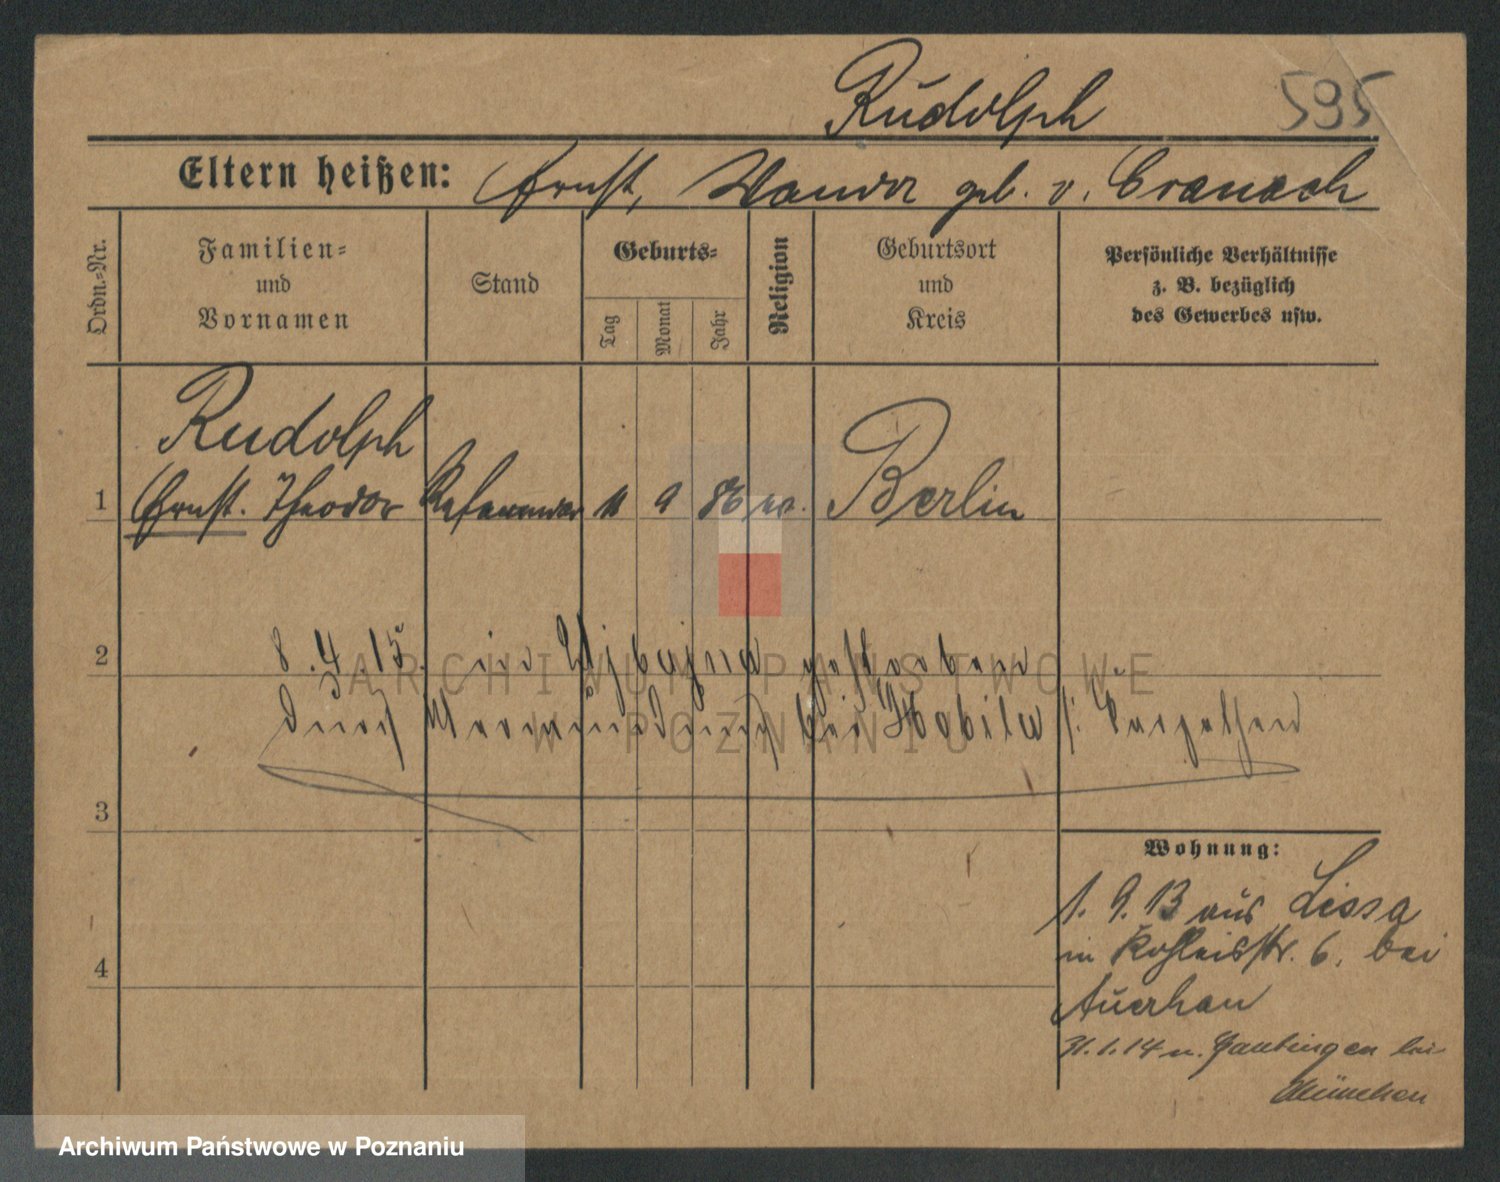 Rudolph 595
Eltern heißen: Ernst, Wanda geb. v. Cranach
Ordn.-Nr.
Familien-
und
Vornamen
Stand
Geburts-
Tag
Monat
Jahr
Religion
Geburtsort
und
Kreis
Persönliche Verhältnisse
z. B. bezüglich
des Gewerbes usw.
Rudolph
1 Ernst. Theodor Referendar 11 9 86 ev. Berlin
2 8.4.15. in gestorben
durch Verwundung bei i. Karpathen
3
4
Wohnung:
1. 9. 13 aus Lissa
in Kohleisstr. 6. bei
Auerhan
31.1.14 n. Gautingen bei
München
ARCHIWUM PAŃSTWOWE
W POZNANIU
Archiwum Państwowe w Poznaniu